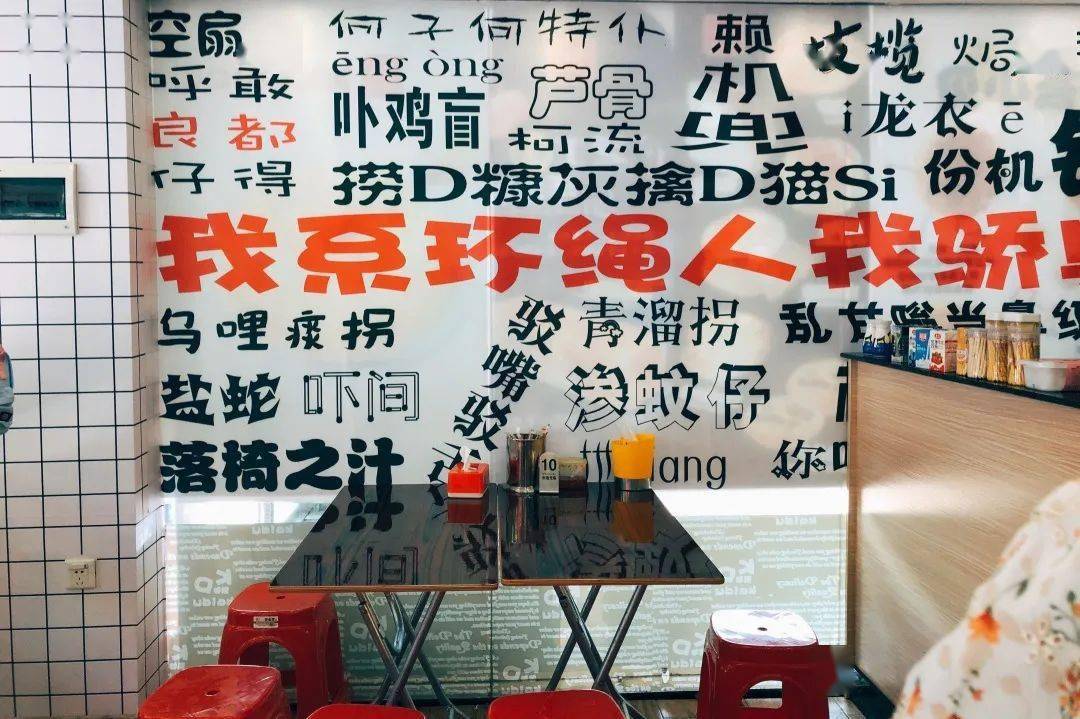 空扇
何子何特仆
赖
皮揽
焗
ēng òng
芦骨
机
呼敢
卟鸡盲
柯流
兜
i龙衣ē
良都
仔得
捞D糠灰擒D猫Si
份机
我系环绳人我骄
乌哩痰拐
驳嘴驳
青溜拐
盐蛇
吓间
渗蚊仔
落椅之汁
ang
你
10